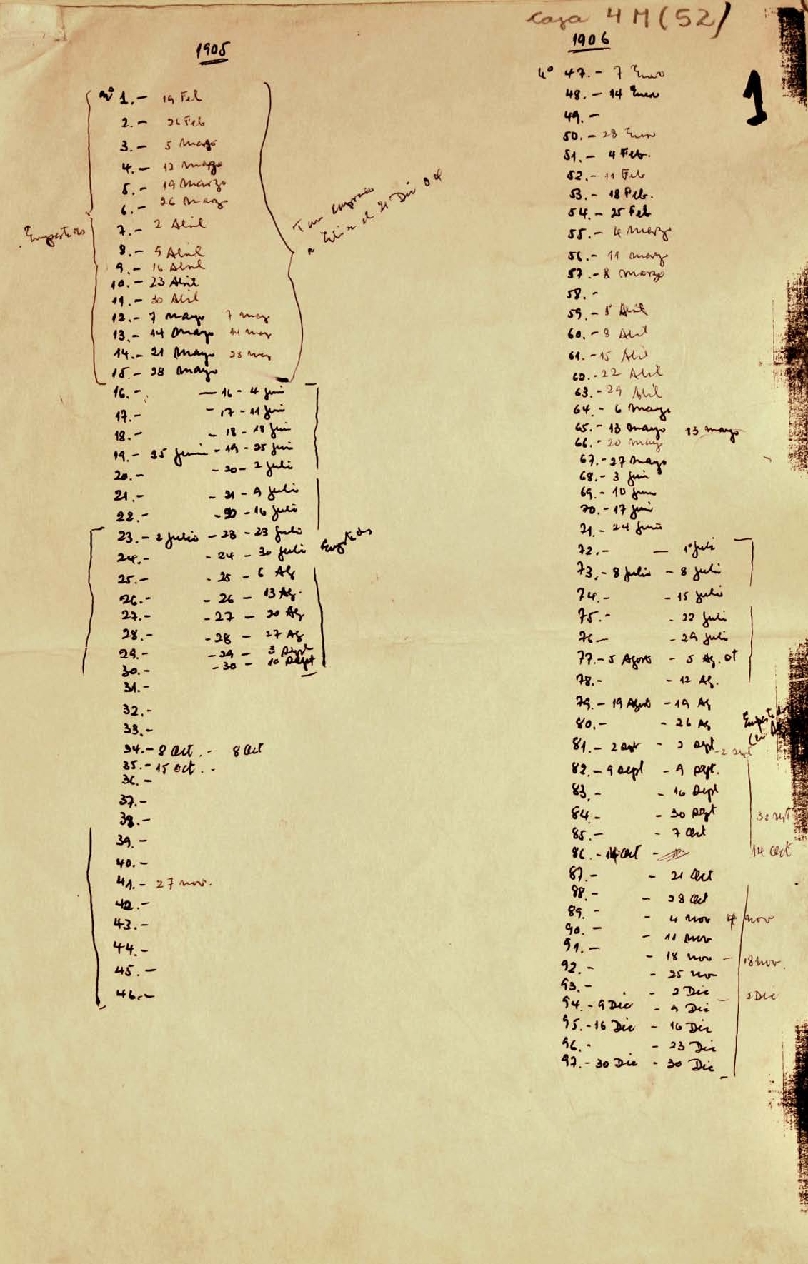 Caja 4 M (52)
1
1905
Nº 1.- 19 Feb
2.- 26 Feb
3.- 5 Marzo
4.- 12 Marzo
5.- 19 Marzo
6.- 26 Marzo
7.- 2 Abril
8.- 9 Abril
9.- 16 Abril
10.- 23 Abril
11.- 30 Abril
12.- 7 Mayo 7 may
13.- 14 Mayo 14 may
14.- 21 Mayo 23 may
15.- 28 Mayo
16.- - 16 - 4 Jun
17.- - 17 - 11 Jun
18.- - 18 - 18 Jun
19.- 25 Junio - 19 - 25 Jun
20.- - 20 - 2 Juli
21.- - 21 - 9 Juli
22.- - 22 - 16 Juli
23.- 2 Julio - 23 - 23 Juli
24.- - 24 - 30 Juli
25.- - 25 - 6 Ag
26.- - 26 - 13 Ag.
27.- - 27 - 20 Ag
28.- - 28 - 27 Ag
29.- - 29 - 3 Sept
30.- - 30 - 10 Sept
31.-
32.-
33.-
34.- 8 Oct.- 8 Oct
35.- 15 Oct..
36.-
37.-
38.-
39.-
40.-
41.- 27 nov.
42.-
43.-
44.-
45.-
46.-
1906
Nº 47.- 7 Enero
48.- 14 Enero
49.-
50.- 28 Enero
51.- 4 Feb.
52.- 11 Feb
53.- 18 Feb.
54.- 25 Feb
55.- 4 Marzo
56.- 11 marzo
57.- 8 marzo
58.-
59.- 5 Abril
60.- 8 Abril
61.- 15 Abril
62.- 22 Abril
63.- 29 Abril
64.- 6 mayo
65.- 13 mayo 13 mayo
66.- 20 mayo
67.- 27 Mayo
68.- 3 Jun
69.- 10 Jun
70.- 17 Jun
71.- 24 Junio
72.- - 1º Juli
73.- 8 Julio - 8 Juli
74.- - 15 Juli
75.- - 22 Juli
76.- - 29 Juli
77.- 5 Agosto - 5 Ag.
78.- - 12 Ag.
79.- 19 Agost - 19 Ag
80.- - 26 Ag
81.- 2 Sept - 2 Sept - 2 Sept
82.- 9 Sept - 9 Sept.
83.- - 16 Sept
84.- - 30 Sept 30 Sept
85.- - 7 Oct
86.- 14 Oct - 14 Oct
87.- - 21 Oct
88.- - 28 Oct
89.- - 4 Nov 4 Nov
90.- - 11 Nov
91.- - 18 Nov - 18 Nov.
92.- - 25 Nov
93.- - 2 Dic - 2 Dic
94.- 9 Dic - 9 Dic
95.- 16 Dic - 16 Dic
96.- - 23 Dic
97.- 30 Dic - 30 Dic